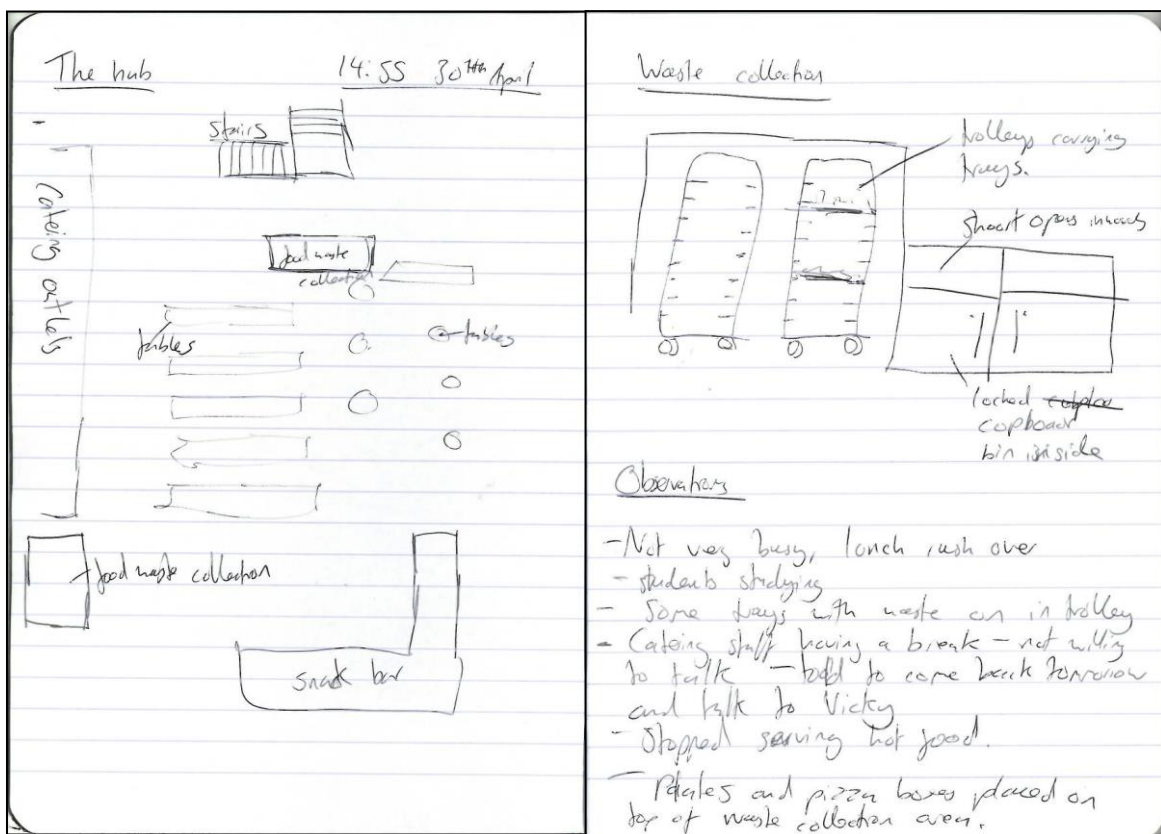 The hub
14:55 30th April
stairs
Cateing outlets
food waste
collection
tables
tables
food waste collection
snack bar
Waste collection
trolleys carrying
trays.
opens inwards
locked
cupboard
bin inside
Observations
- Not very busy, lunch rush over
- students studying
- Some trays with waste on in trolley
- Cateing staff having a break - not willing
to talk - told to come back tomorrow
and talk to Vicky
- Stopped serving hot food.
- Plates and pizza boxes placed on
top of waste collection area.